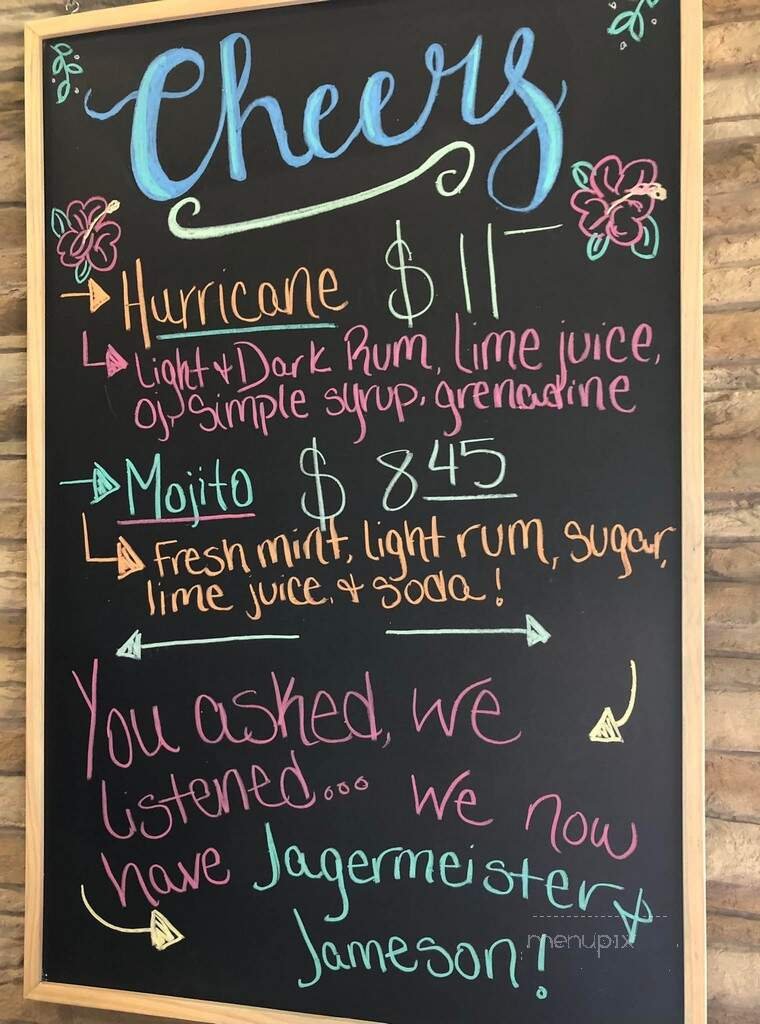 Cheers
Hurricane $ 11-
Light & Dark Rum, lime juice,
oj, simple syrup, grenadine
Mojito $ 8 45
Fresh mint, light rum, sugar,
lime juice, & soda!
You asked, we
listened... we now
have Jagermeister &
Jameson!
menupix